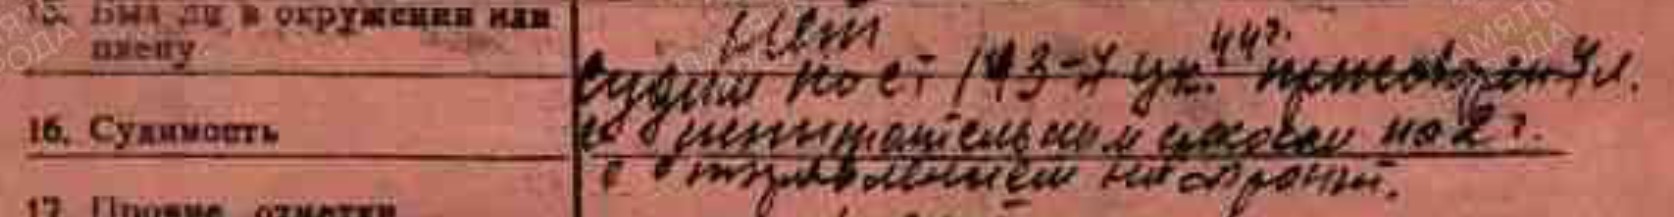 15. Был ли в окружении или плену Нет
16. Судимость Судим по ст 193-7 ук. 44г. приговорен 7 л.
с испытательным сроком на 2 г.
с отправлением на фронт.
17. Прочие отметки